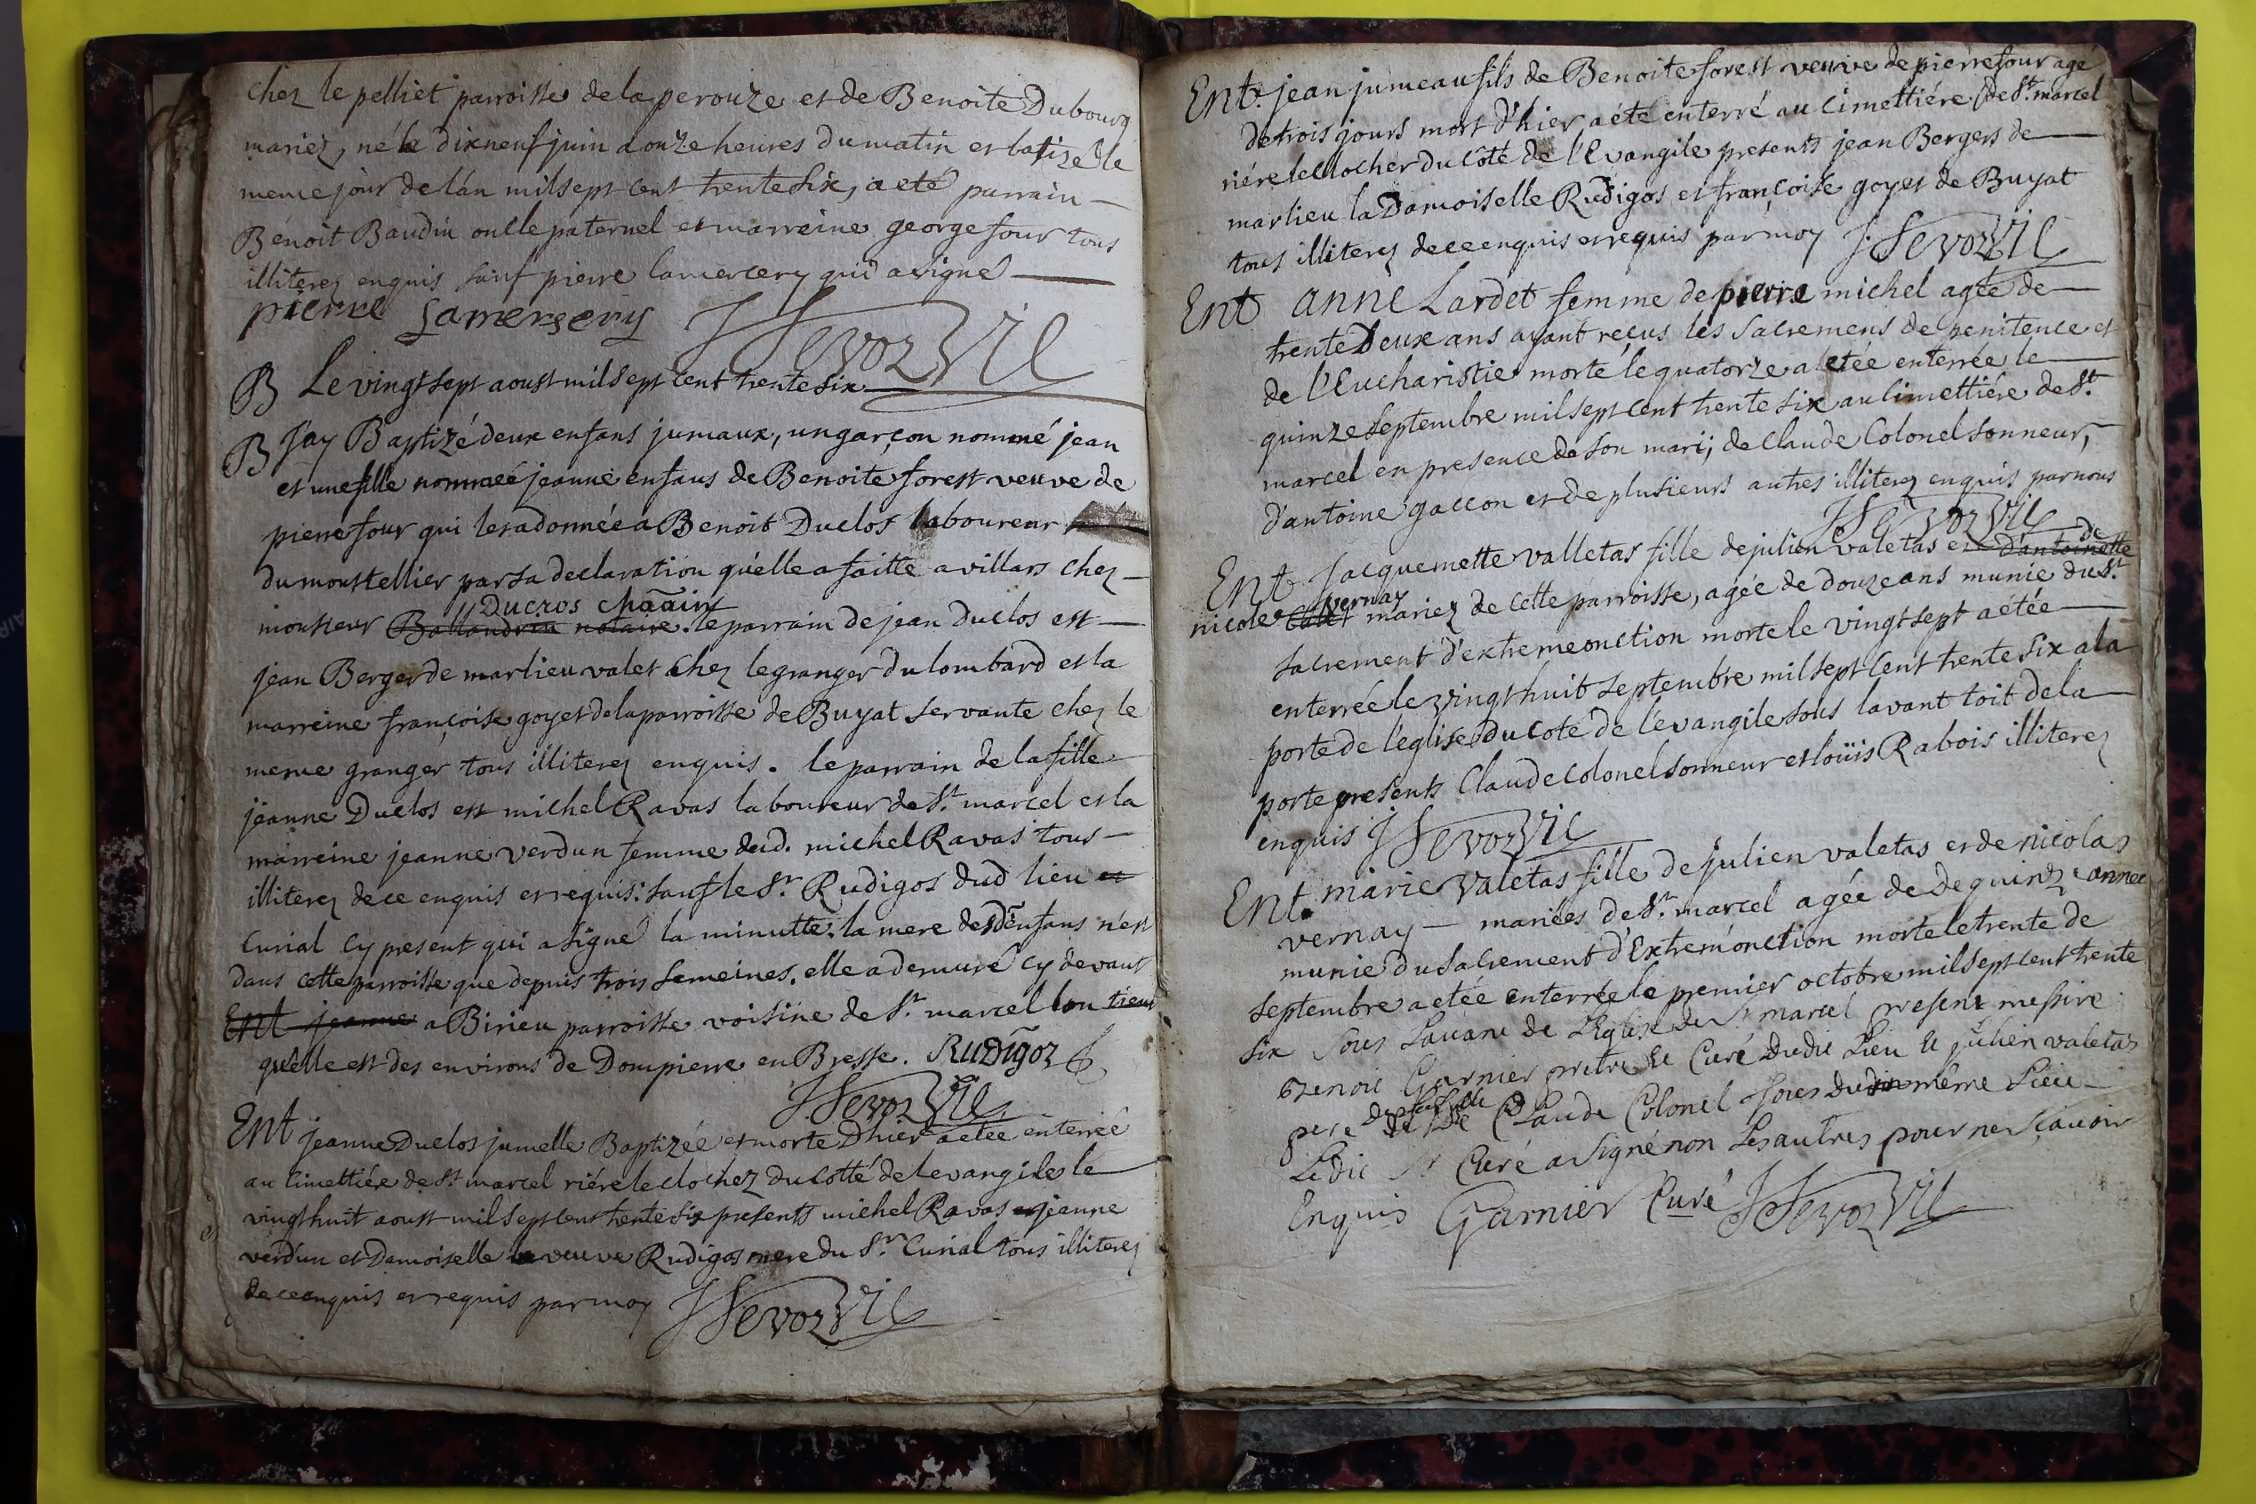 chez le pelliet parroisse de la perouze et de Benoite Dubourg
mariez, né le dixneuf juin a onze heures du matin et batizé le
meme jour de lán mil sept cent trente six, a eté parrain
Benoit Baudin oncle paternel et marreine george four tous
illiterez enquis sauf pierre lamercery qui a signé
pierre Lamersery J Sevoz Vic
B Le vingt sept aoust mil sept cent trente six
B J'ay Baptizé deux enfans jumaux, un garçon nommé jean
et une fille nommeé jeanne enfans de Benoite forest veuve de
pierre four qui les a donnée a Benoit Duclos laboureur
du moustellier par sa declaration quélle a faitte a villars chez
monsieur Ballandrin notaire Ducros chãain . le parrain de jean duclos est
jean Berger de marlieu valet chez le granger du lombard et la
marreine françoise goyet de la parroisse de Buyat servante chez le
meme granger tous illiterez enquis . le parrain de la fille
jeanne Duclos est michel Ravas laboureur de St. marcel et la
marreine jeanne verdun femme dud. michel Ravas tous
illiterez de ce enquis et requis: sauf le Sr. Rudigos dud lieu et
Curial Cy present qui a signé la minutte. la mere desd. enfans n'est
dans cette parroisse que depuis trois semeines. elle a demuré cy devant
Ent jeanne a Birieu parroisse voisine de St. marcel lon tient
quélle est des environs de Dompierre en Bresse. Rudigoz
J. Sevoz Vic
Ent jeanne Duclos jumelle Baptizée et morte D'hier a etée enterrée
au Cimettiére de St. marcel riére le clochez du Cotté de Levangile le
vingt huit aoust mil sept cent trente six presents michel Ravas et jeanne
verdun et Damoiselle la veuve Rudigos mere du Sr. Curial tous illiterez
de ce enquis et requis par moy J Sevoz Vic
Ent. jean jumeau fils de Benoite forest veuve de pierre four agé
de trois jours mort d'hier a eté enterré au Cimettiére de St. marcel
riére le clocher du Côté de l'Evangile presents jean Bergers de
marlieu la Damoiselle Rudigos et françoise goyet de Buyat
tous illiterez de ce enquis et requis par moy J. Sevoz Vic
Ent anne Lardet femme de pierre michel agée de
trente Deux ans ayant reçus les sacremens de penitence et
de l'Eucharistie morte le quatorze a etée enterrée le
quinze septembre mil sept cent trente six au Cimettiére de St.
marcel en presence de son mari, de claude Colonel sonneur,
d'antoine gaccon et de plusieurs autres illiterez enquis par nous
J Sevoz Vic
Ent Jacquemette valletas fille de julien valetas et d'antoinette de
nicole vernay mariez de cette parroisse, agée de douze ans munie du St.
sacrement d'extremeonction morte le vingt sept a étée
enterrée le vingt huit septembre mil sept cent trente six a la
porte de l'eglise du Coté de l'evangile sous lavant toit de la
porte presents Claude Colonel sonneur et loüis Rabois illiterez
enquis J Sevoz Vic
Ent. marie valetas fille de julien valetas et de nicolas
vernay mariées de St. marcel agée de de quinze année
munie du sacrement d'Extremonction morte le trente de
septembre a etée enterrée le premier octobre mil sept cent trente
six sous Lavant de L'Eglise de St marcel present messire
Benoit Garnier pretre et Curé dudit Lieu et julien valetas
pere de sa fille Claude Colonel tous dudit même Lieu
Ledit Sr Curé a signé non Les autres pour ne sçavoir
Enquis Garnier Curé J Sevoz Vic